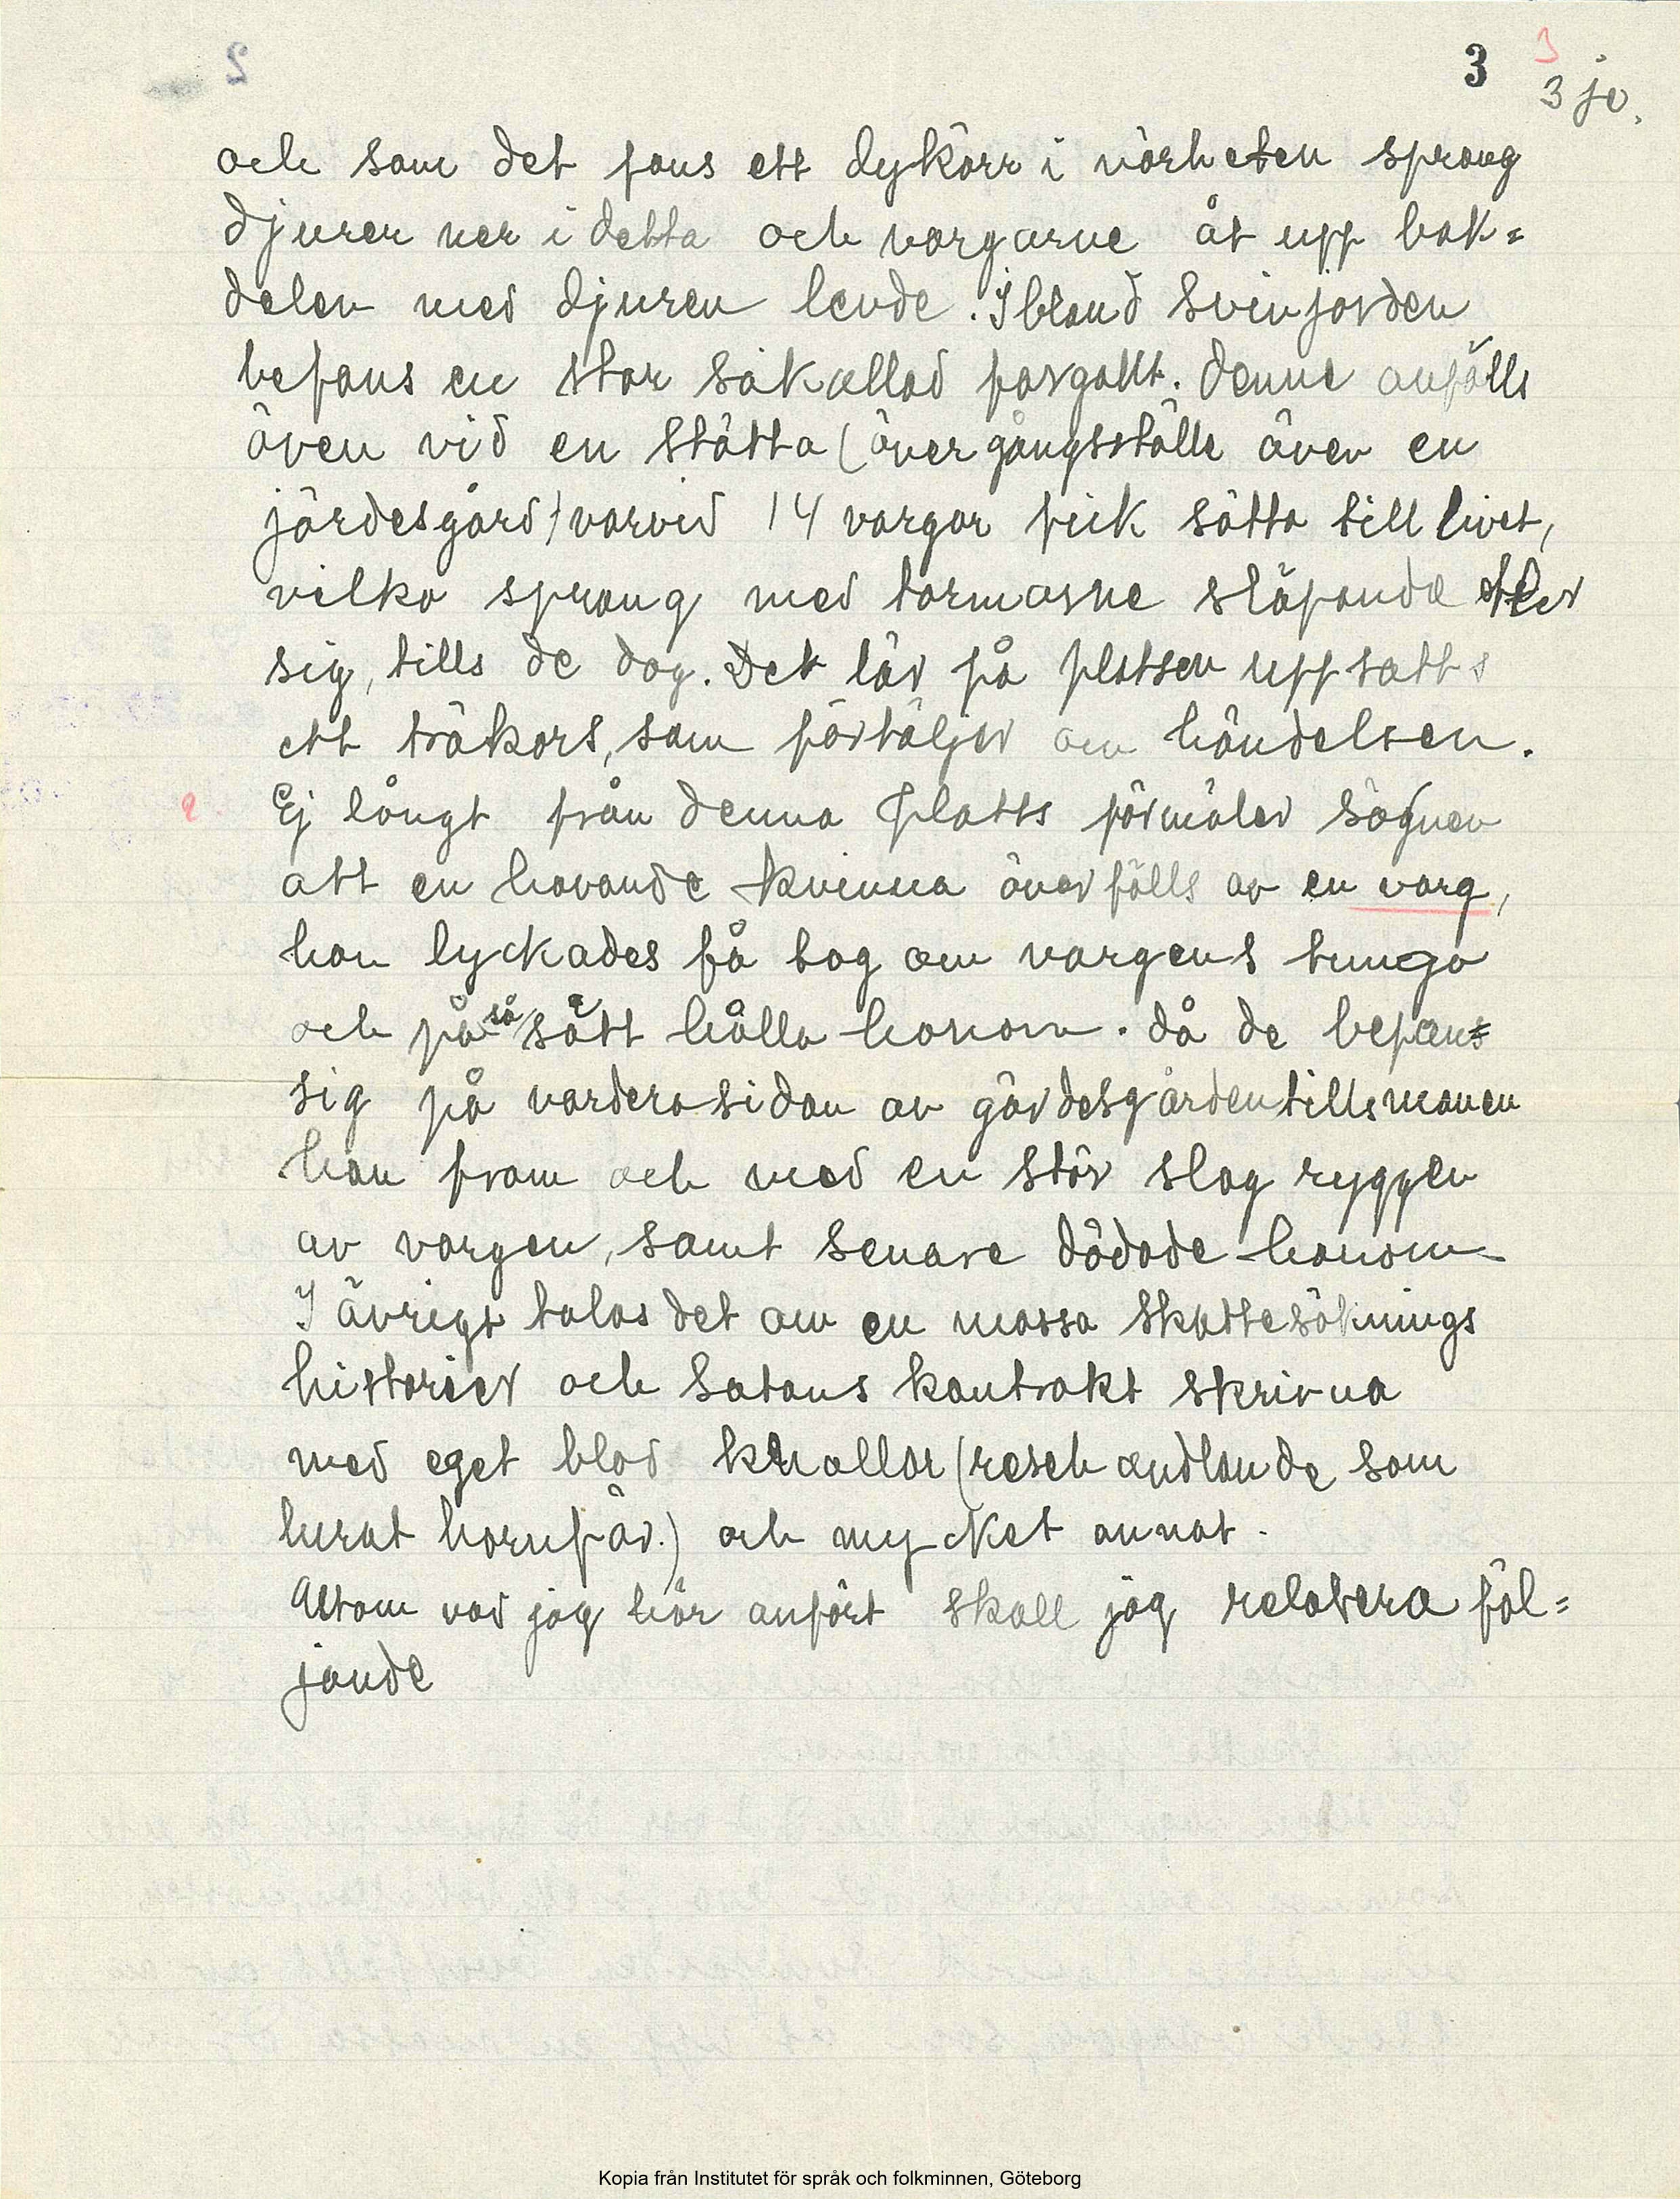 3
3 jo.
och som det fans ett dykärr i närheten sprang
djuren ner i detta och vargarne åt upp bak=
delen med djuren levde. Ibland svinjorden
befans en stor såkallad fargallt. denne anfölls
även vid en stätta (övergångsställe över en
järdesgård) varvid 14 vargar fick sätta till livet,
vilka sprang med tarmarne släpande efter
sig, tills de dog. Det lär på platsen uppsatts
ett träkors, som förtäljer om händelsen.
2. Ej långt från denna platts förmäler sägnen
att en havande kvinna överfölls av en varg,
hon lyckades få tag om vargens tunga
och på så sätt hålla honom. då de befans
sig på vardera sidan av gärdesgården tills manen
han fram och med en stör slog ryggen
av vargen, samt senare dödade honom
I övrigt talas det om en massa skattesöknings
historier och Satans kontrakt skrivna
med eget blod knallar (resehandlande som
lurat hornfär.) och mycket annat.
Utom vad jag här anfört skall jag relatera föl=
jande
Kopia från Institutet för språk och folkminnen, Göteborg